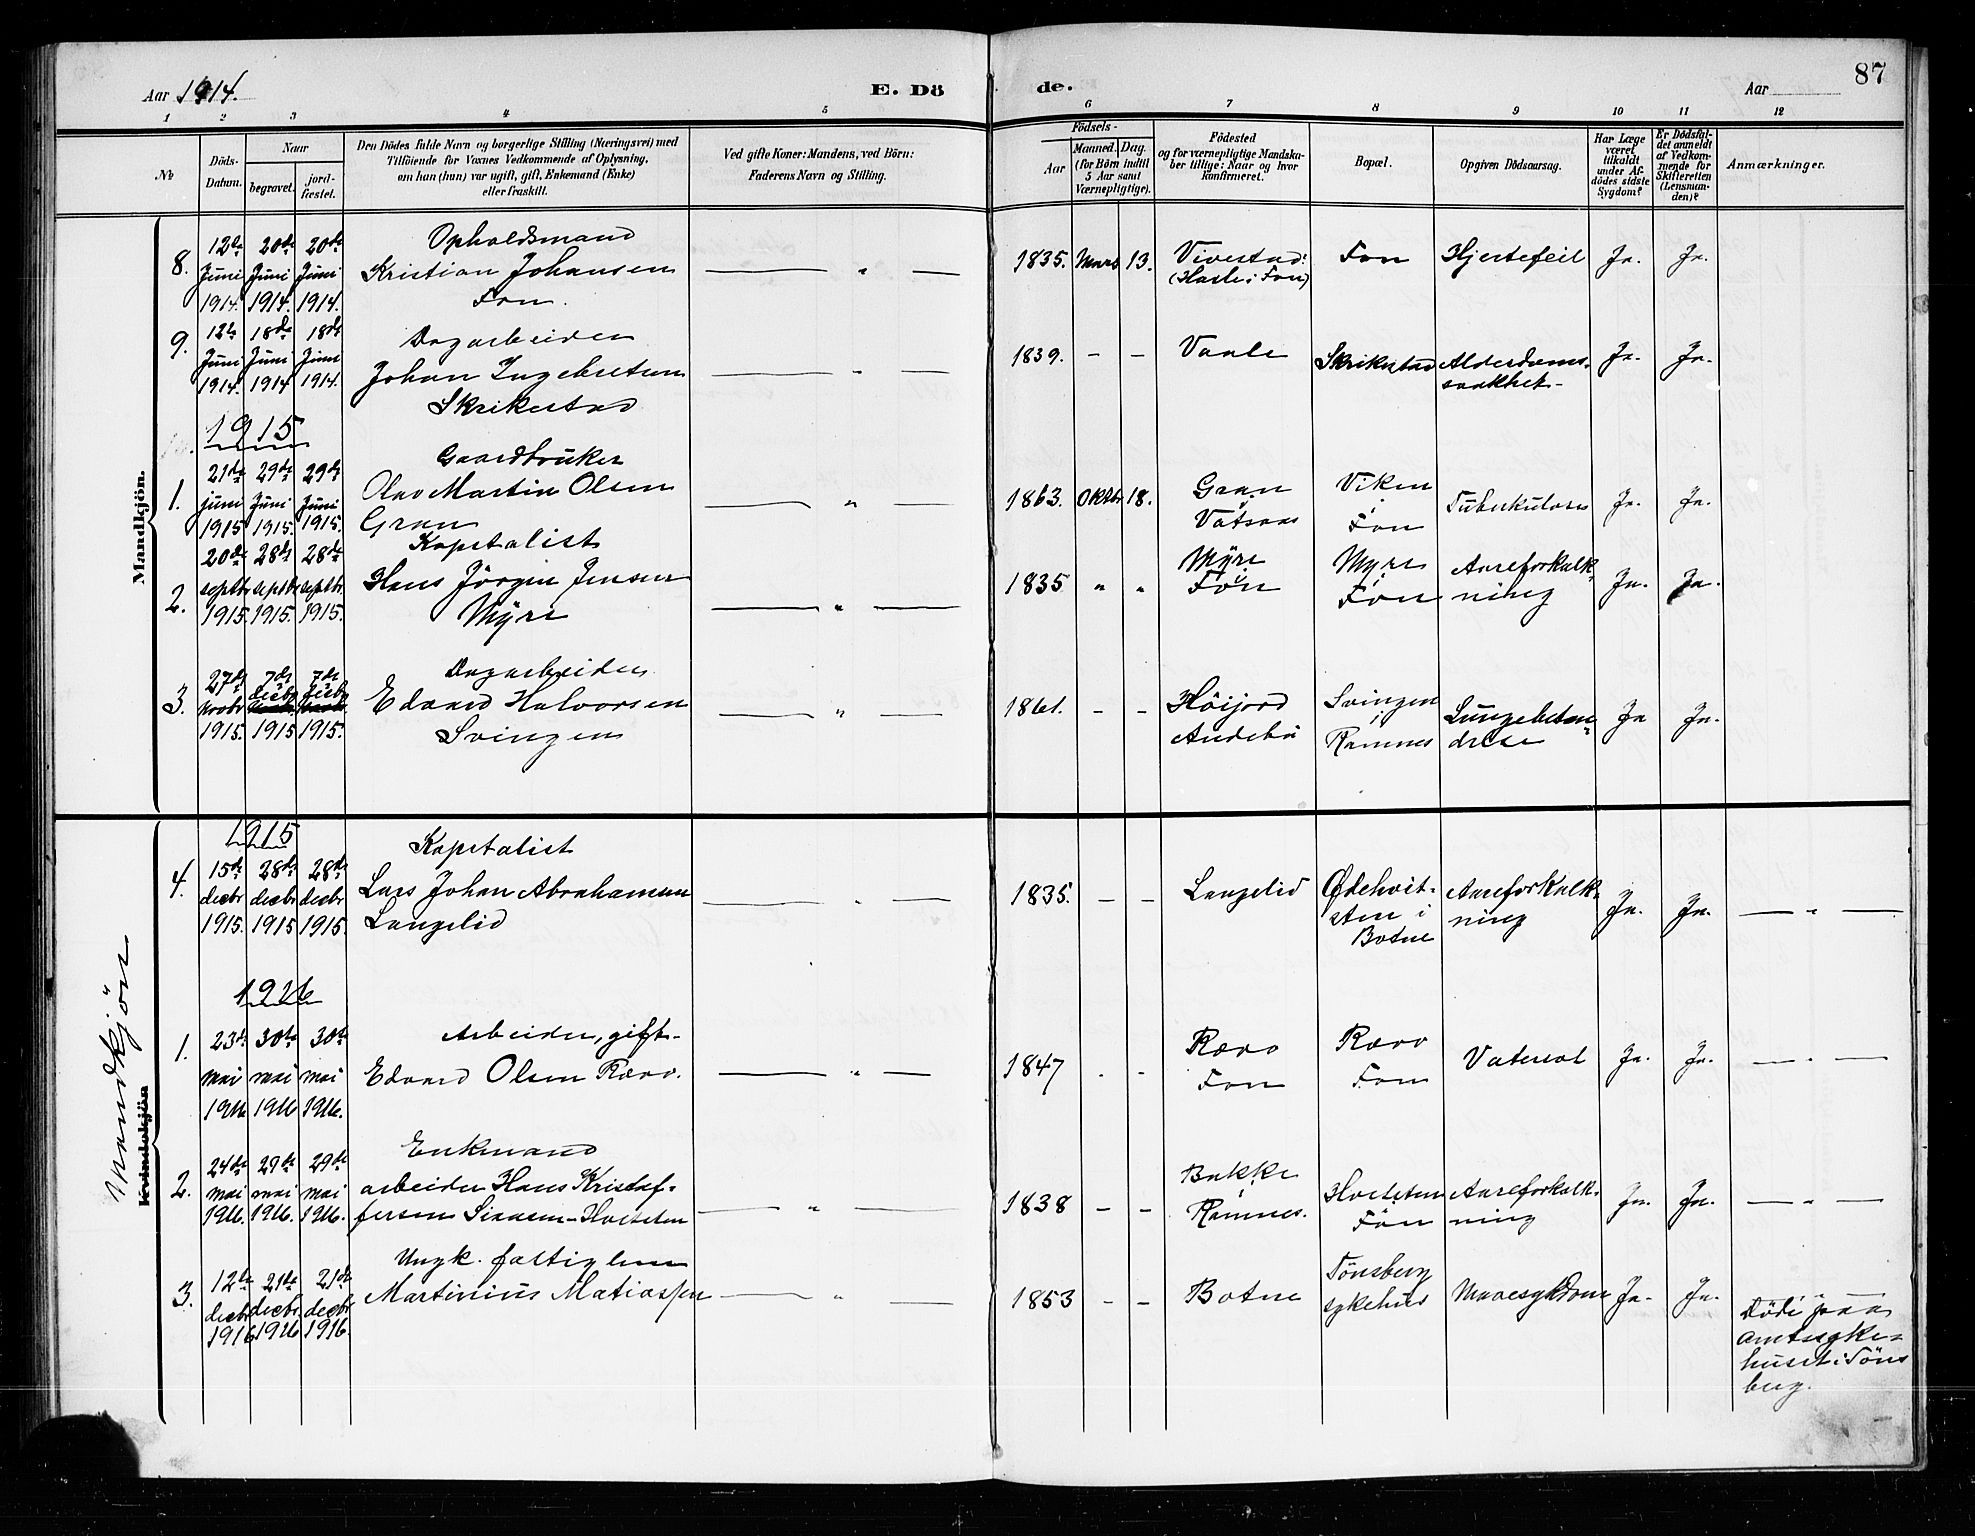 Aar 1914.
E. Dö
de.
Aar
87
1 2 3 4 5 6 7 8 9 10 11 12
No
Döds-Datum.
Naar
begravet.
jord-fæstet.
Den Dödes fulde Navn og borgerlige Stilling (Næringsvei) med
Tilföiende för Voxnes Vedkommende af Oplysning,
om han (hun) var ugift, gift, Enkemand (Enke)
eller fraskilt.
Ved gifte Koner: Mandens, ved Börn:
Faderens Navn og Stilling.
Födsels-
Aar
Maaned. Dag.
(for Börn indtil
5 Aar samt
Værnepligtige).
Födested
og for værnepligtige Mandska-
ber tillige: Naar og hvor
konfirmeret.
Bopæl.
Opgiven Dödsaarsag.
Har Læge
været
tilkaldt
under Af-
dödes sidste
Sygdom?
Er Dödsfal-
det anmeldt
af Vedkom-
mende for
Skifteretten
(Lensman-
den)?
Anmærkninger.
Mandkjön.
8. 12te Juni 1914. 20de Juni 1914. 20de Juni 1914.
Opholdsmand
Kristian Johansen
Fon.
— " —
1835. Mars 13.
Vivestad:
(Hasle i Fon)
Fon
Hjertefeil
Ja. Ja.
9. 12te Juni 1914. 18de Juni 1914 18de Juni 1914.
Dagarbeider
Johan Ingebretsen
Skrikestad
— " —
1839. — —
Vaale
Skrikestad
Alderdoms-
svakhet.
Ja. Ja.
1915
1. 21de juni 1915 29de Juni 1915. 29de Juni 1915.
Gaardbruker
Olav Martin Olsen
Gran
— " —
1863. Oktbr 18.
Gran
i
Vatsaas
Viken
i
Fon
Tuberkulose
Ja. Ja.
2. 20de septbr 1915. 28de septbr 1915. 28de septbr. 1915.
Kapitalist
Hans Jörgin Jensen
Myre
— " —
1835 " "
Myre
i
Fon
Myre
i
Fon
Aareforkalk-
ning
Ja. Ja.
3. 27de Novbr 1915. 7de decbr 1915 7de decbr 1915.
Dagarbeider
Edvard Halvorsen
Svingen
— " —
1861. — —
Höijord
Andebu
Svingen
i
Ramnes
Lungebeten-
delse
Ja Ja.
Kvindekjön
Mandkjön
1915
4. 15de decbr 1915. 28de decbr 1915 28de decbr 1915.
Kapitalist
Lars Johan Abrahamsen
Langelid
— " —
1835. — —
Langelid
Ødehvit-
sten i
Botne
Aareforkalk-
ning
Ja. Ja. — " —
1916
1. 23de mai 1916. 30te mai 1916 30te mai 1916.
Arbeider, gift.
Edvard Olsen Rævo.
— " —
1847 - -
Rævo
Fon
Rævo
Fon
Vatersot
Ja. Ja. — " —
2. 24de mai 1916. 29de mai 1916. 29de mai 1916.
Enkmand
arbeider Hans Kristof-
fersen Simsen-Hvitsten
— " —
1838 — —
Bakke
i
Ramnes.
Hvitsten
Fon
Aareforkalk-
ning
Ja. Ja. — " —
3. 12te decbr 1916 21de decbr. 1916 21de decbr 1916.
Ungk. fattiglem
Martinius Matiassen
— " —
1853 — —
Botne
Tönsberg
sykehus
Mavesykdom
Ja. Ja.
— " —
Död paa
amtssyke-
huset i Töns
berg.